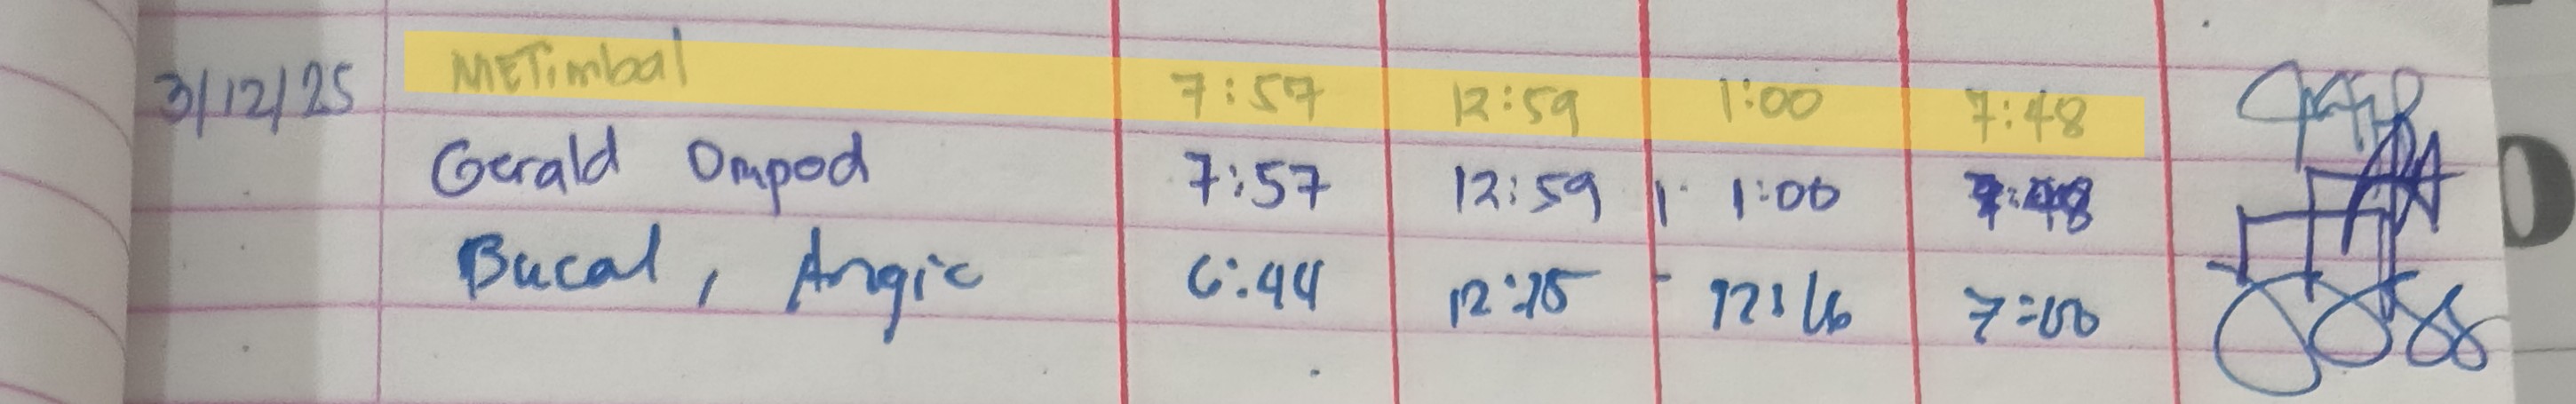 3/12/25 METimbal 7:57 12:59 1:00 7:48
Gerald Ompod 7:57 12:59 1:00 7:48
Bucal, Angie 6:44 12:15 12:16 7:00